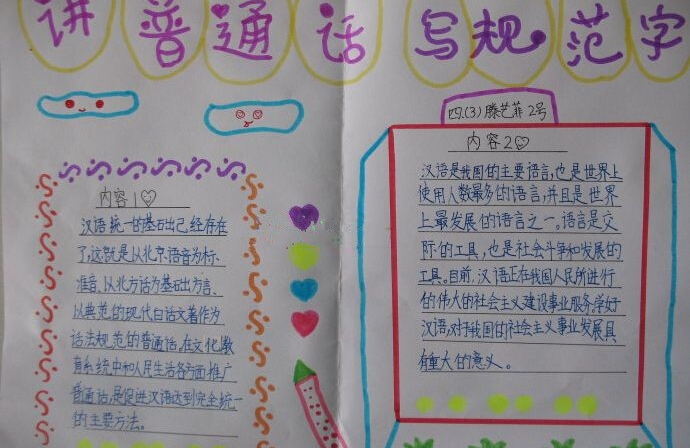 讲普通话 写规范字
内容1
汉语统一的基石出己经存在
了,这就是以北京语音为标
准音、以北方话为基础方言、
以典范的现代白话文著作为
话法规范的普通话,在文化教
育系统中和人民生活各方面推广
普通话,是促进汉语达到完全统一
的主要方法。
四.(3)滕艺菲2号
内容2
汉语是我国的主要语言,也是世界上
使用人数最多的语言,并且是世界
上最发展的语言之一。语言是交
际的工具,也是社会斗争和发展的
工具。目前,汉语正在我国人民所进行
的伟大的社会主义建设事业服务,学好
汉语,对于我国的社会主义事业发展具
有重大的意义。